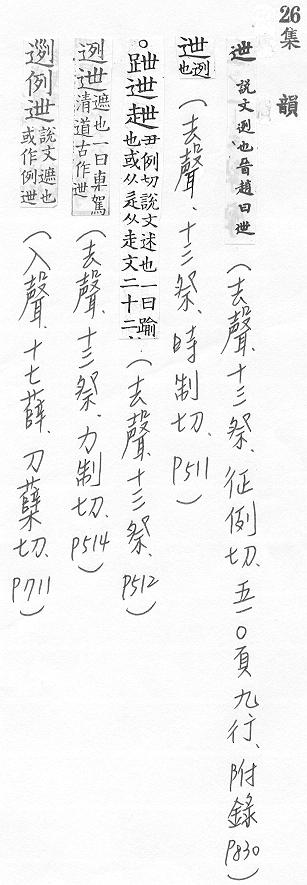 26集韻
迣 說文迾也晉趙曰迣（去聲、十三祭、征例切、五一〇頁九行、附錄P830）
迣 迾也（去聲、十三祭、時制切、P511）
。跇迣䢪 丑例切說文述也一曰踰也或从辵从走文二十二（去聲、十三祭、P512）
迾迣 遮也一曰車駕清道古作迣（去聲、十三祭、力制切、P514）
迾例迣 說文遮也或作例迣（入聲、十七薛、力蘖切、P711）